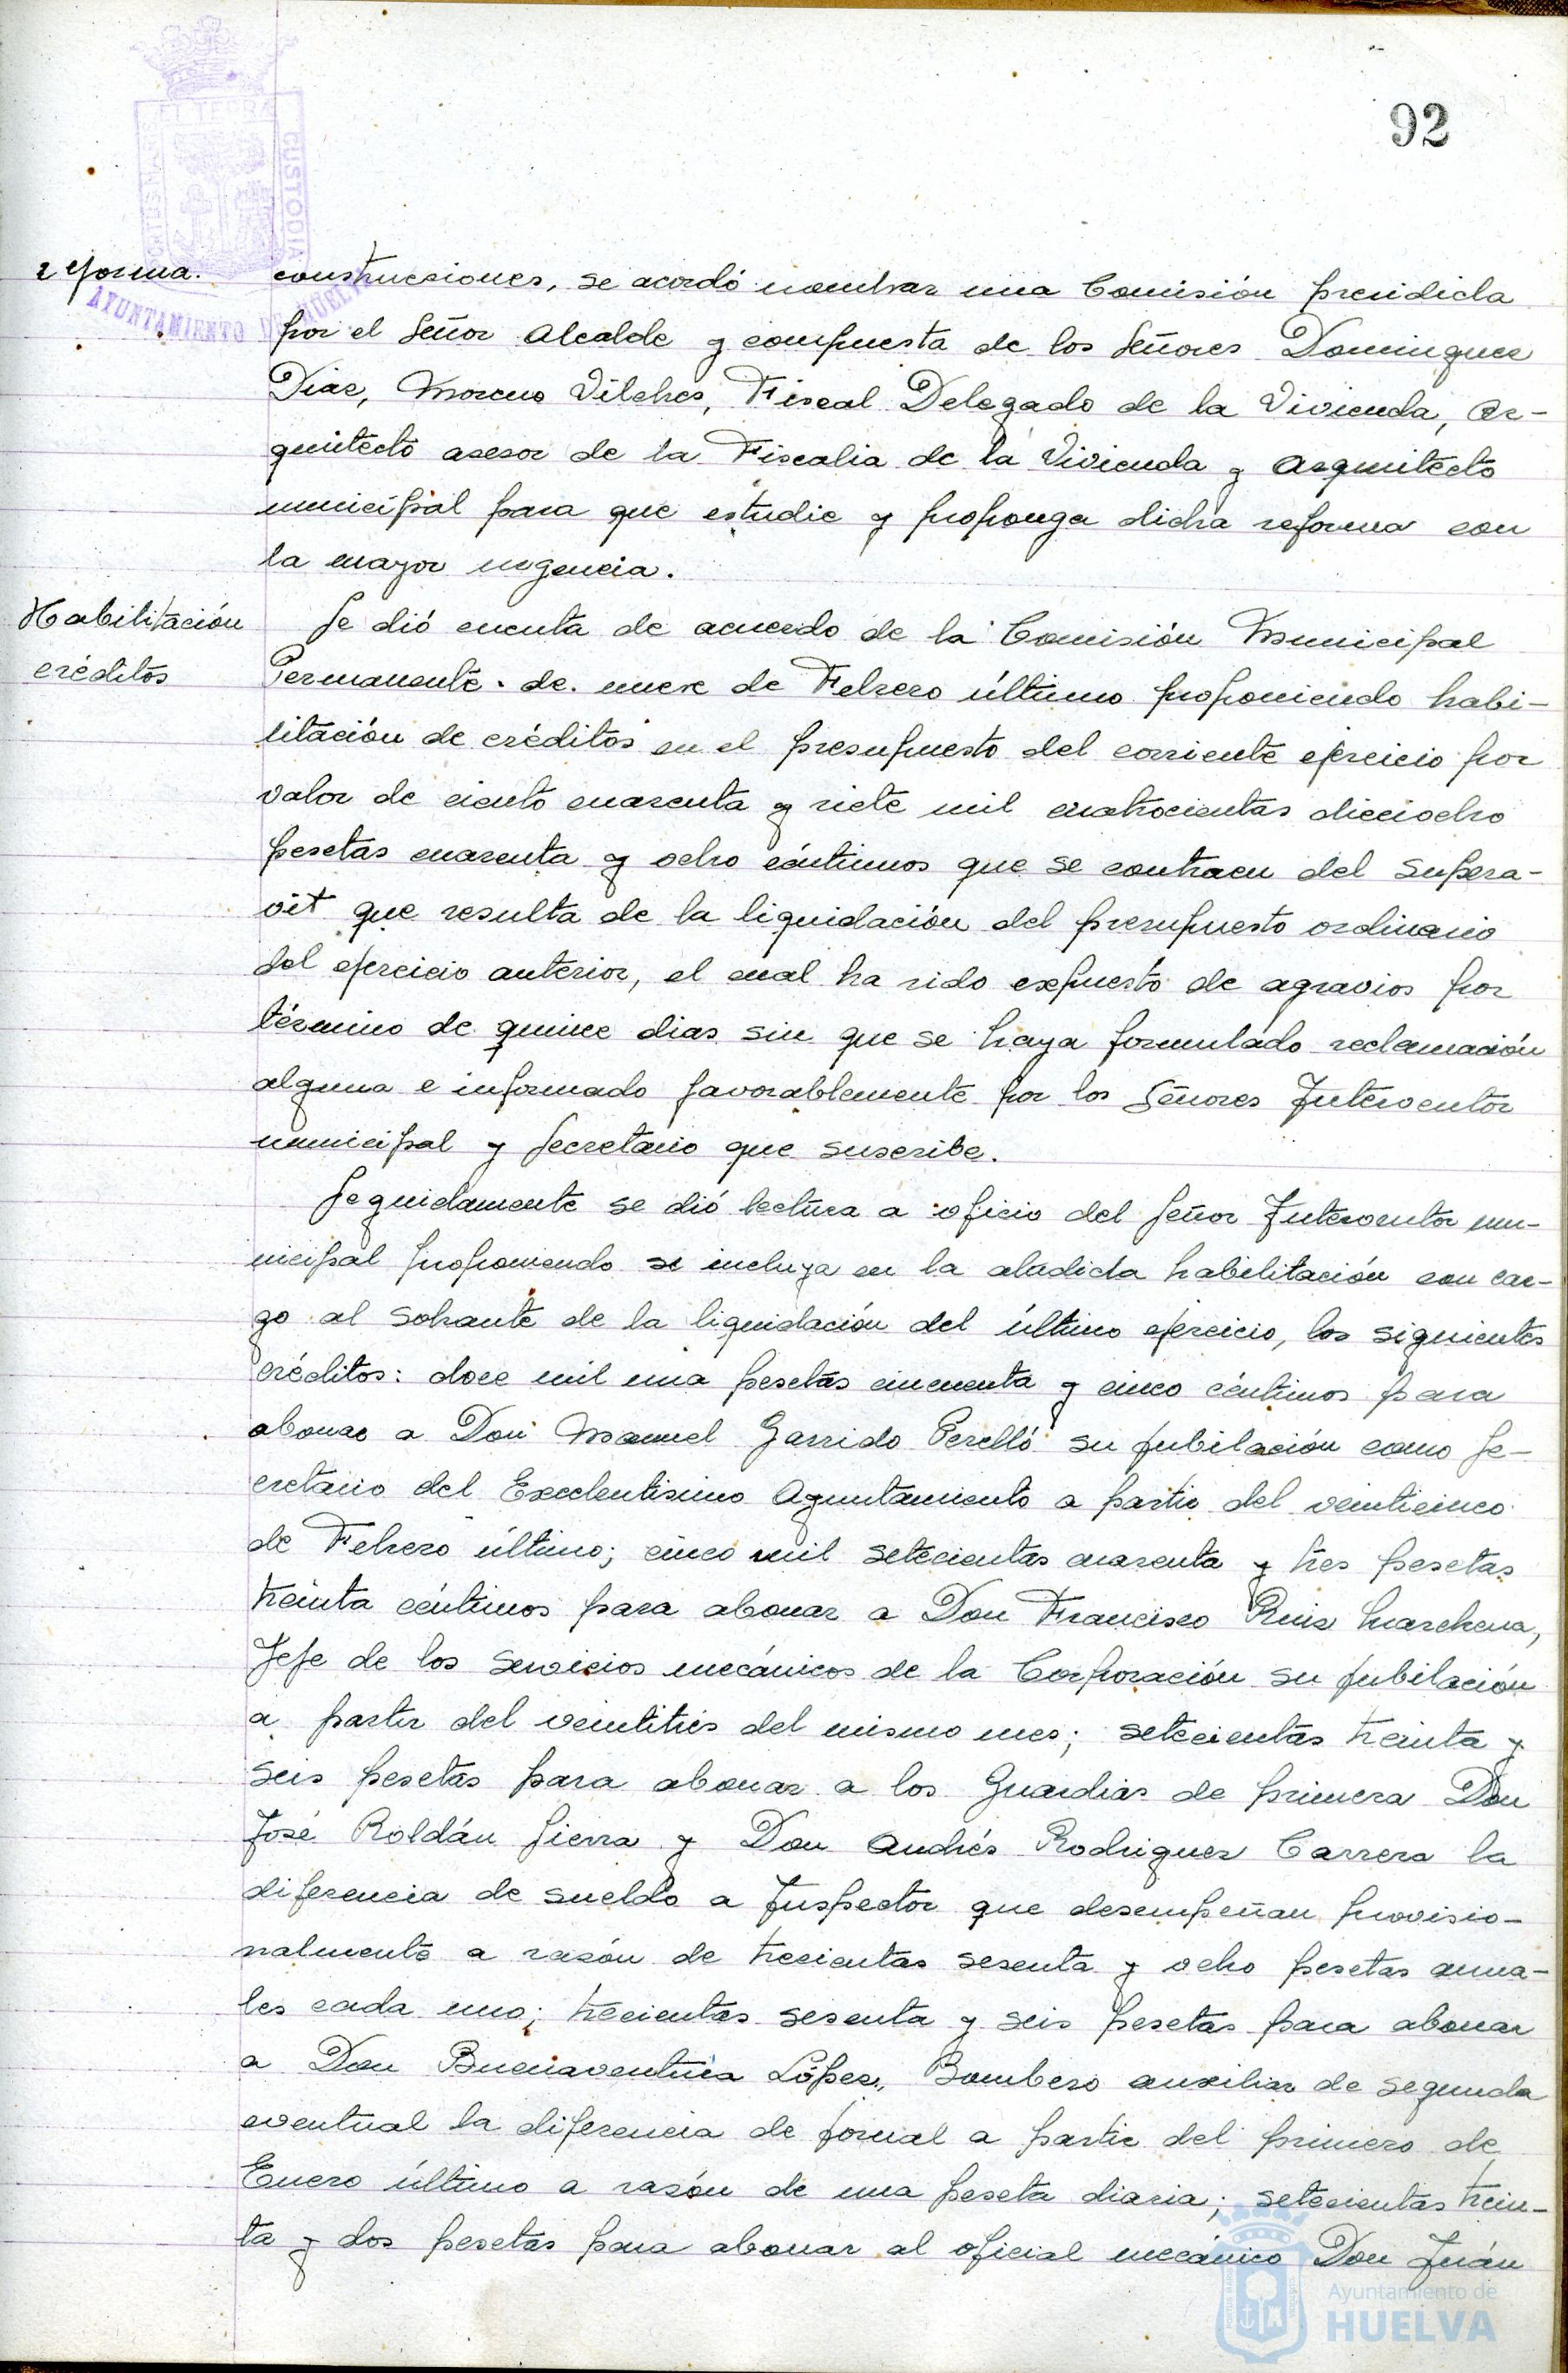 92
reforma.
construcciones, se acordó nombrar una Comisión presidida
por el Señor Alcalde y compuesta de los Señores Dominguez
Diaz, Moreno Vilches, Fiscal Delegado de la Vivienda, Ar-
quitecto asesor de la Fiscalia de la Vivienda y Arquitecto
municipal para que estudie y proponga dicha reforma con
la mayor urgencia.
Habilitación
créditos
Se dió cuenta de acuerdo de la Comisión Municipal
Permanente de nueve de Febrero último proponiendo habi-
litación de créditos en el presupuesto del corriente ejercicio por
valor de ciento cuarenta y siete mil cuatrocientas dieciocho
pesetas cuarenta y ocho céntimos que se contraen del supera-
vit que resulta de la liquidación del presupuesto ordinario
del ejercicio anterior, el cual ha sido expuesto de agravios por
término de quince dias sin que se haya formulado reclamación
alguna e informado favorablemente por los Señores Interventor
municipal y Secretario que suscribe.
Seguidamente se dió lectura a oficio del Señor Interventor mu-
nicipal proponiendo se incluya en la aludida habilitación con car-
go al sobrante de la liquidación del último ejercicio, los siguientes
créditos: doce mil una pesetas cincuenta y cinco céntimos para
abonar a Don Manuel Garrido Perelló su jubilación como Se-
cretario del Excelentisimo Ayuntamiento a partir del veinticinco
de Febrero último; cinco mil setecientas cuarenta y tres pesetas
treinta céntimos para abonar a Don Francisco Ruiz Marchena,
Jefe de los servicios mecánicos de la Corporación su jubilación
a partir del veintitrés del mismo mes; setecientas treinta y
seis pesetas para abonar a los Guardias de primera Don
José Roldán Sierra y Don Andrés Rodriguez Carrera la
diferencia de sueldo a Inspector que desempeñan provisio-
nalmente a razón de trecientas sesenta y ocho pesetas anua-
les cada uno; trecientas sesenta y seis pesetas para abonar
a Don Buenaventura López, Bombero auxiliar de segunda
eventual la diferencia de jornal a partir del primero de
Enero último a razón de una peseta diaria; setecientas trein-
ta y dos pesetas para abonar al oficial mecánico Don Juán
AYUNTAMIENTO DE HUELVA
CUSTODIA
Ayuntamiento de
HUELVA